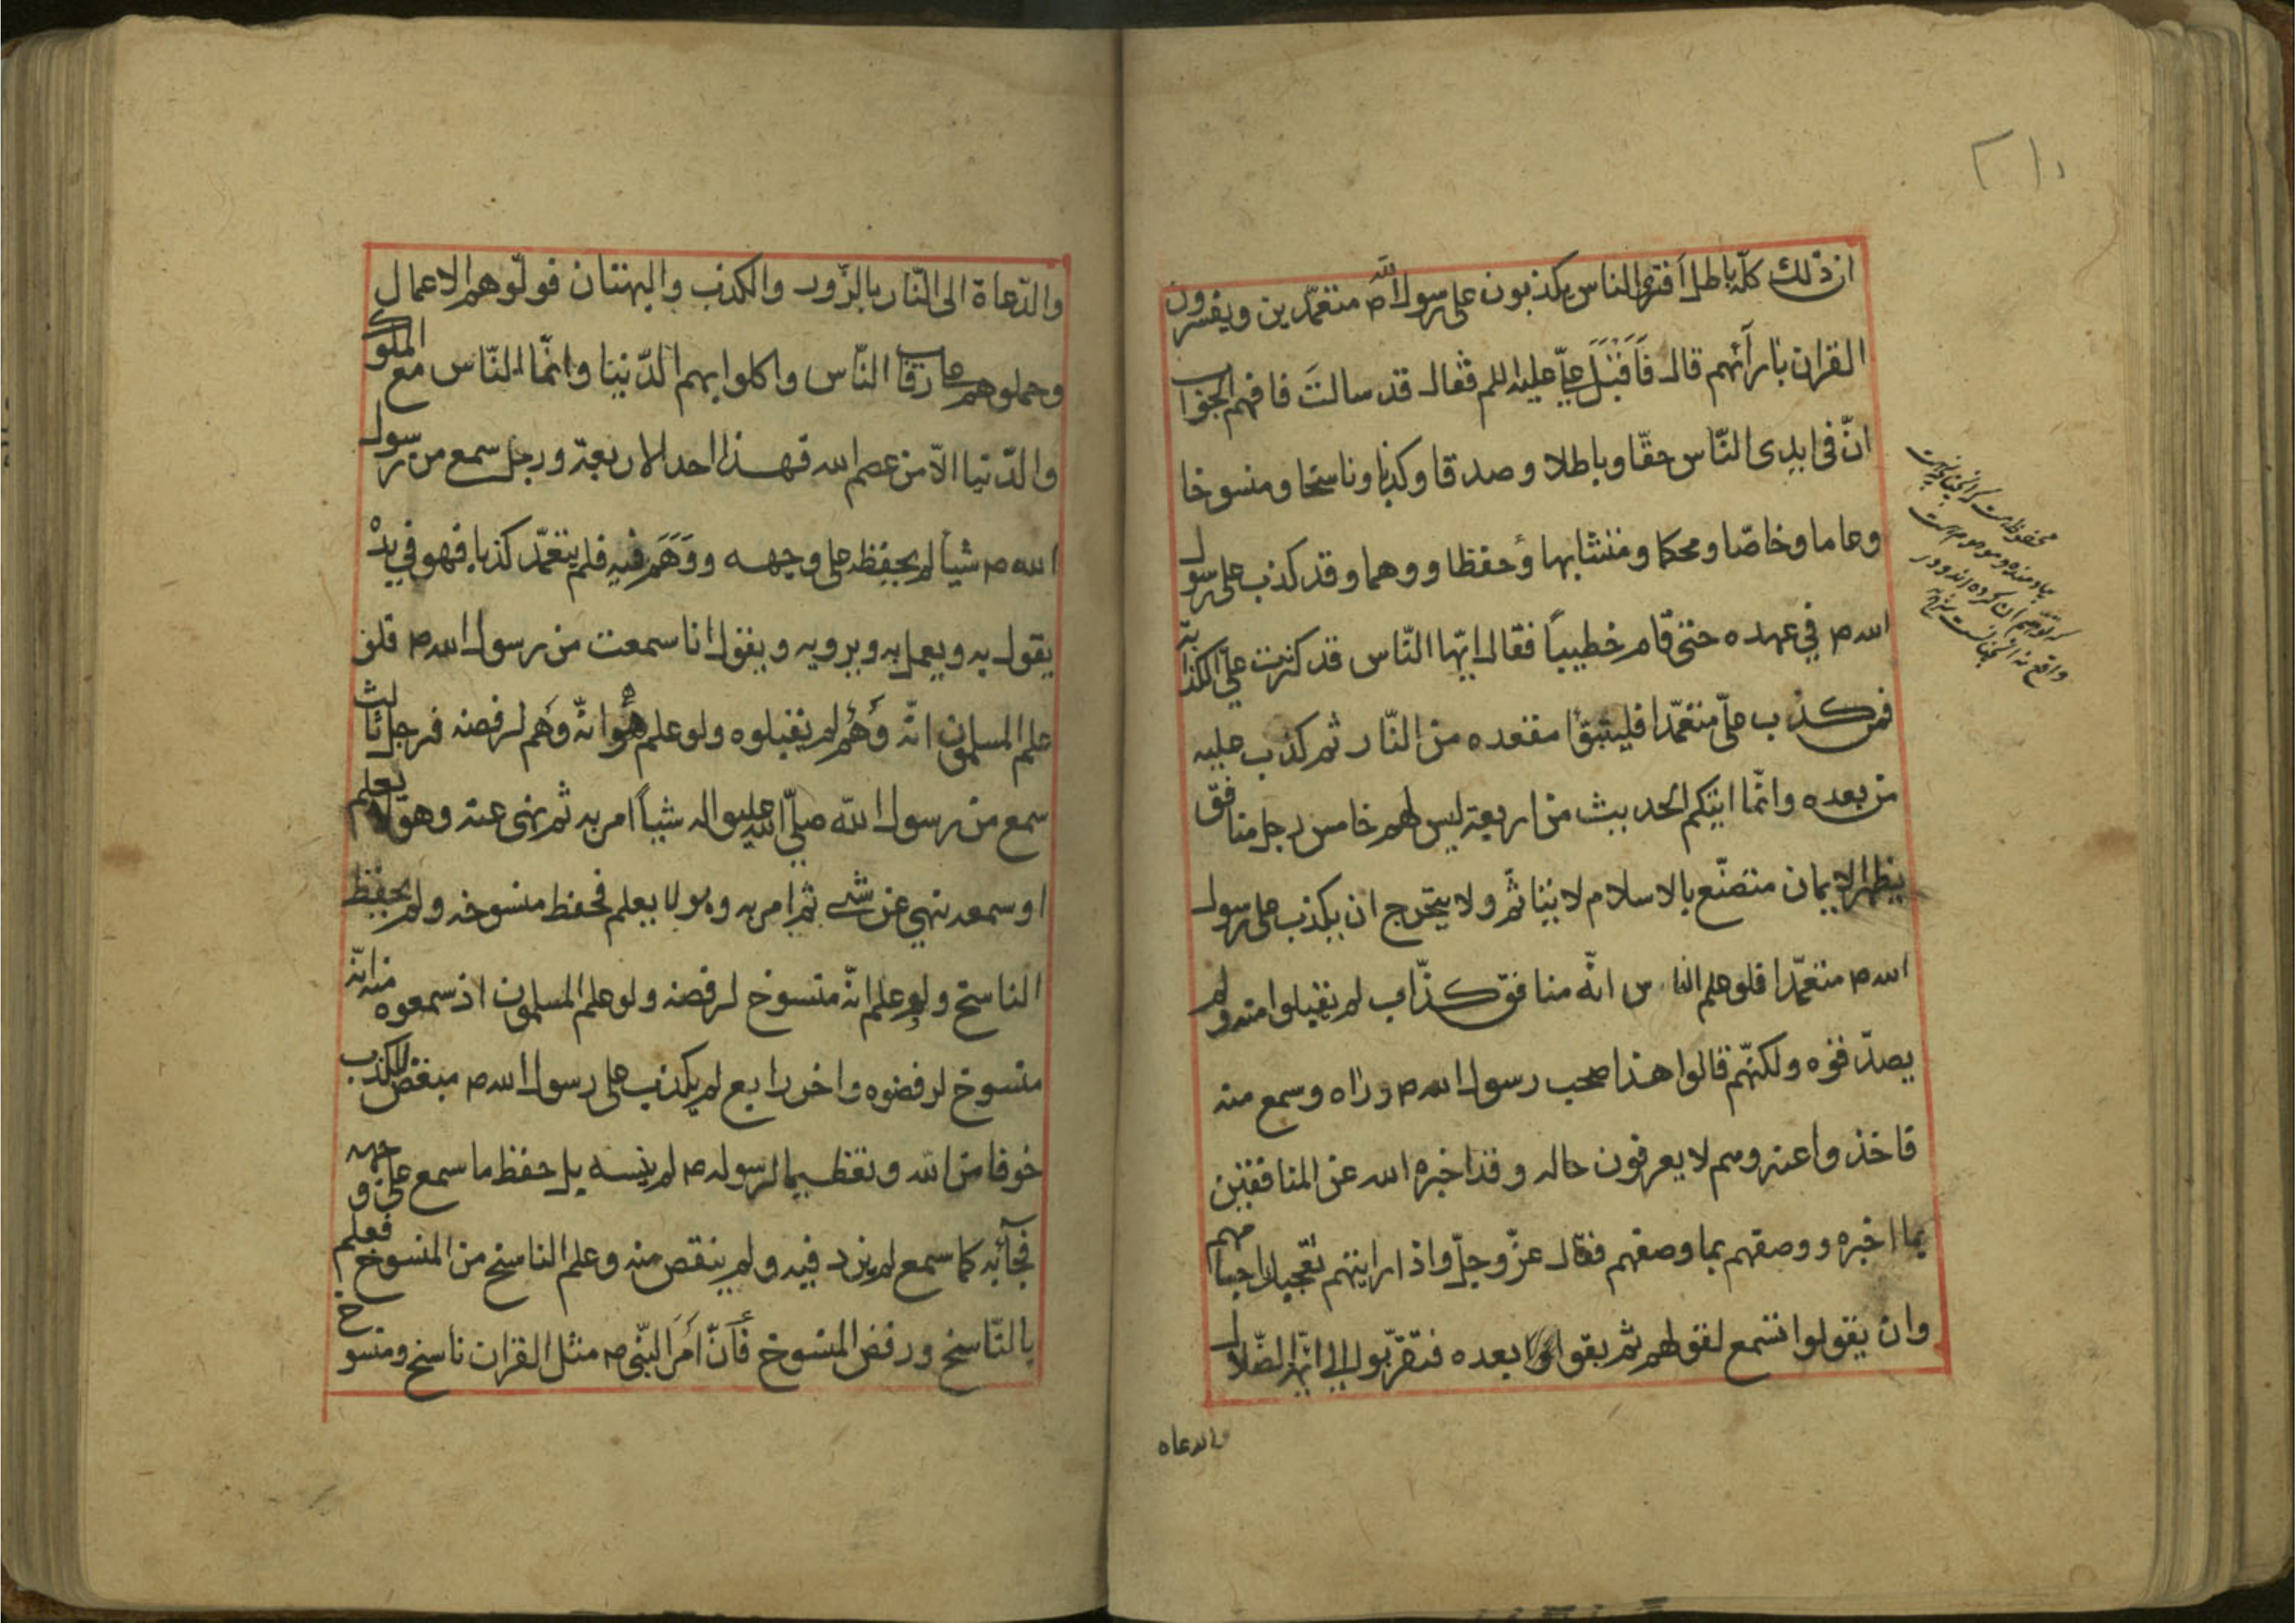 ان ذلك كلّه باطل أفترى الناس يكذبون على رسول الله ص متعمّدين ويفسرون
القران بارآئهم قال فَأَقْبَلَ عليّ عليه السلم فقال قد سالتَ فافهم الجواب
انّ فى ايدى النّاس حقّا وباطلا وصدقا وكذبا وناسخا ومنسوخا
وعاما وخاصّا ومحكما ومتشابها وحفظا ووهما وقد كذب على رسول
الله ص في عهده حتى قام خطيباً فقال ايّها النّاس قد كثرت عليّ الكذابة
فمن كذب عليّ متعمّدا فليتبوّأ مقعده من النّار ثم كذب عليه
من بعده وانّما اتيكم الحديث من اربعة ليس لهم خامس رجل منافق
يظهر الايمان متصنّع بالاسلام لا يتاثّم ولا يتحرج ان يكذب على رسول
الله ص متعمّدا فلو علم الناس انّه منافق كذّاب لم يقبلوا منه ولم
يصدّقوه ولكنّهم قالوا هذا صحب رسول الله ص وراه وسمع منه
فاخذوا عنه وهم لا يعرفون حاله وقد اخبره الله عن المنافقين
بما اخبره ووصفهم بما وصفهم فقال عزّ وجلّ واذا رايتهم تعجبك اجسامهم
وان يقولوا تسمع لقولهم ثم بقوا بعده فتقرّبوا الى ائمّة الضّلال
والدعاه
محفوظ
۲۱۰
والدّعاة الى النّار بالزّور والكذب والبهتان فولّوهم الاعمال
وحملوهم على رقاب النّاس واكلوا بهم الدّنيا وانّما النّاس مع الملوك
والدّنيا الاّ من عصم الله فهذا احد الاربعة ورجل سمع من رسول
الله ص شيأ لم يحفظه على وجهه ووَهَمَ فيه فلم يتعمّد كذبا فهو في يده
يقول به ويعمل به ويرويه ويقول انا سمعت من رسول الله ص فلو
علم المسلمون انّه وَهَم لم يقبلوه ولو علم هو انّه وَهَم لرفضه فرجل ثالث
سمع من رسول الله صلّى الله عليه واله شيأً امر به ثم نهى عنه وهو لا يعلم
او سمعه نهي عن شئ ثم امر به وهو لا يعلم فحفظ منسوخه ولم يحفظ
الناسخ ولو علم انّه منسوخ لرفضه ولو علم المسلمون اذ سمعوه منه انّه
منسوخ لرفضوه واخر رابع لم يكذب على رسول الله ص مبغض للكذب
خوفا من الله وتعظيما لرسوله ص لم ينسه بل حفظ ما سمع على وجهه
فجآء به كما سمع لم يزد فيه ولم ينقص منه وعلم الناسخ من المنسوخ فعلم
بالنّاسخ ورفض المنسوخ فَأنّ أمَرَ النّبى ص مثل القران ناسخ ومنسوخ